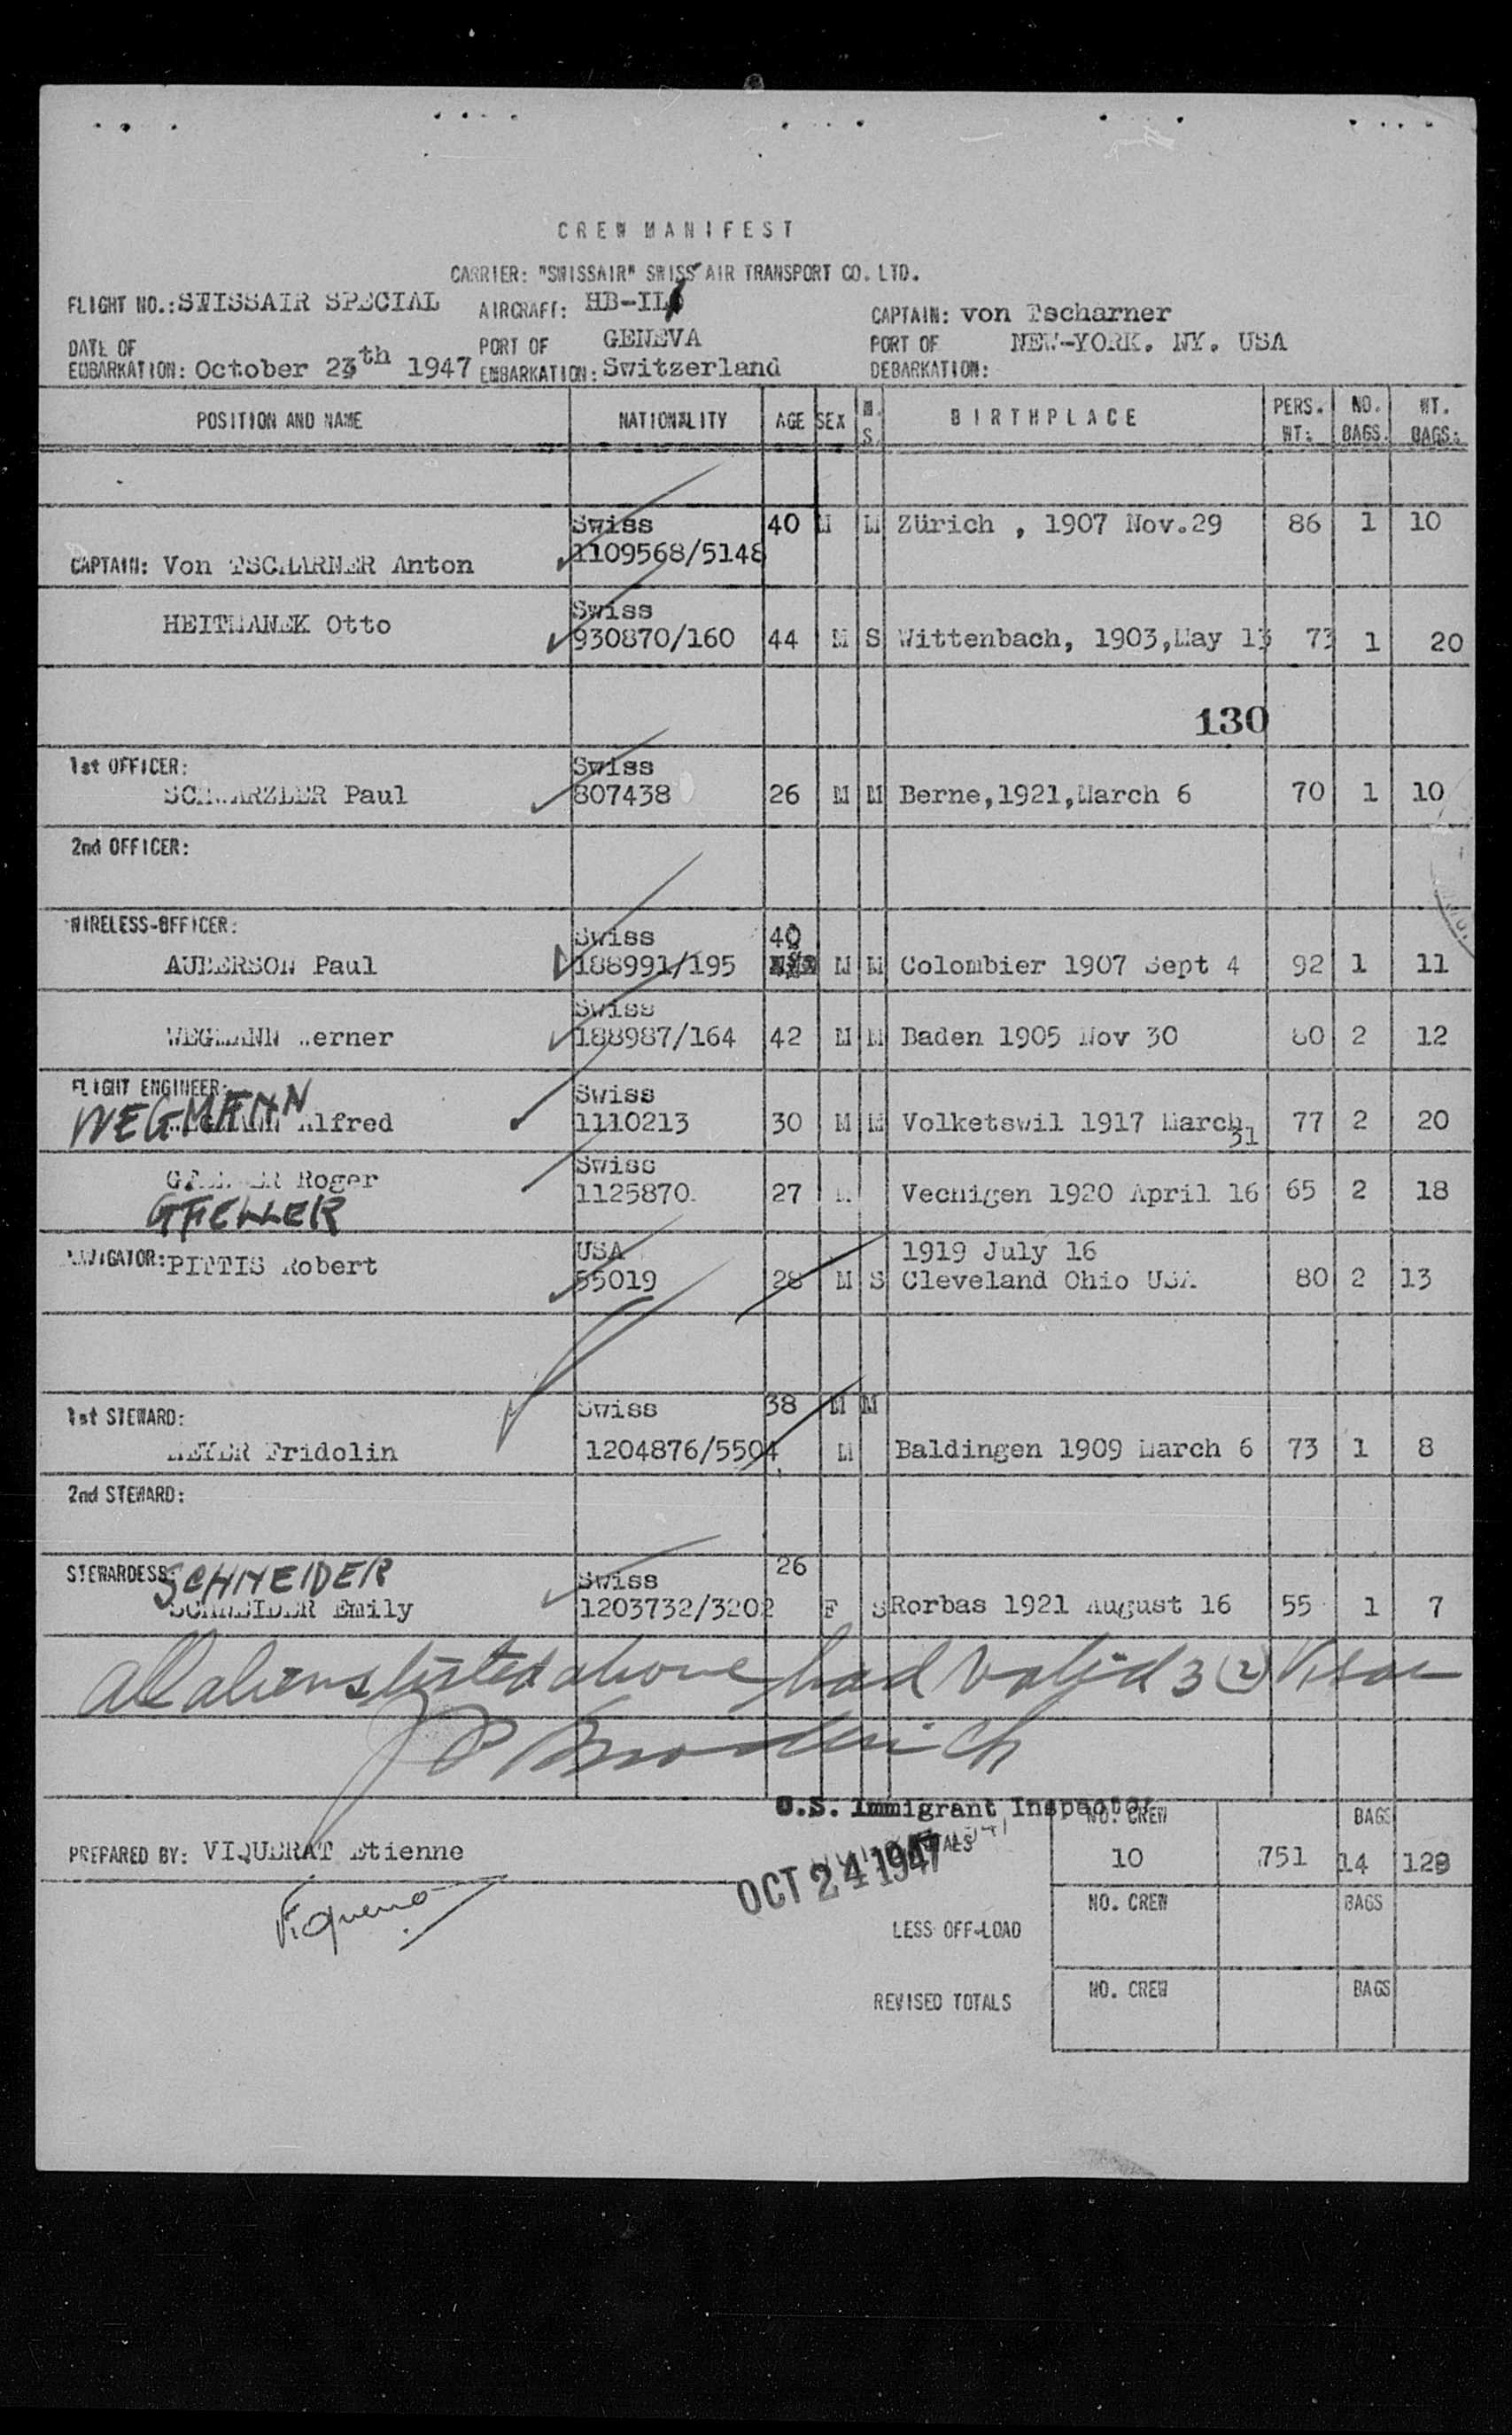 CREW MANIFEST
CARRIER: "SWISSAIR" SWISS AIR TRANSPORT CO. LTD.
FLIGHT NO.: SWISSAIR SPECIAL AIRCRAFT: HB-IL CAPTAIN: von Tscharner
DATE OF EMBARKATION: October 23th 1947 PORT OF EMBARKATION: GENEVA Switzerland PORT OF DEBARKATION: NEW-YORK. NY. USA
POSITION AND NAME NATIONALITY AGE SEX M. S. BIRTHPLACE PERS. WT: NO. BAGS. WT. BAGS:
Swiss 40 M M Zürich , 1907 Nov.29 86 1 10
CAPTAIN: Von TSCHARNER Anton 1109568/5148
Swiss
HEITMANEK Otto 930870/160 44 M S Wittenbach, 1903,May 13 73 1 20
130
1st OFFICER: Swiss
SCHWARZLER Paul 807438 26 M M Berne,1921,March 6 70 1 10
2nd OFFICER:
WIRELESS-OFFICER: Swiss 40
AUBERSON Paul 188991/195 M M Colombier 1907 Sept 4 92 1 11
Swiss
WEGMANN Werner 188987/164 42 M M Baden 1905 Nov 30 80 2 12
FLIGHT ENGINEER: Swiss
WEGMANN Alfred 1110213 30 M M Volketswil 1917 March 31 77 2 20
Swiss
GFELLER Roger 1125870 27 M Vechigen 1920 April 16 65 2 18
GFELLER
USA 1919 July 16
NAVIGATOR: PITTIS Robert 55019 28 M S Cleveland Ohio USA 80 2 13
1st STEWARD: Swiss 38 M M
MEYER Fridolin 1204876/5504 M Baldingen 1909 March 6 73 1 8
2nd STEWARD:
STEWARDESS: SCHNEIDER Swiss 26
SCHNEIDER Emily 1203732/3202 F S Rorbas 1921 August 16 55 1 7
All aliens listed above had valid 3(2) Visas
U.S. Immigrant Inspector
NO. CREW BAGS
PREPARED BY: VIQUERAT Etienne 10 751 14 129
OCT 24 1947
NO. CREW BAGS
LESS OFF-LOAD
NO. CREW BAGS
REVISED TOTALS